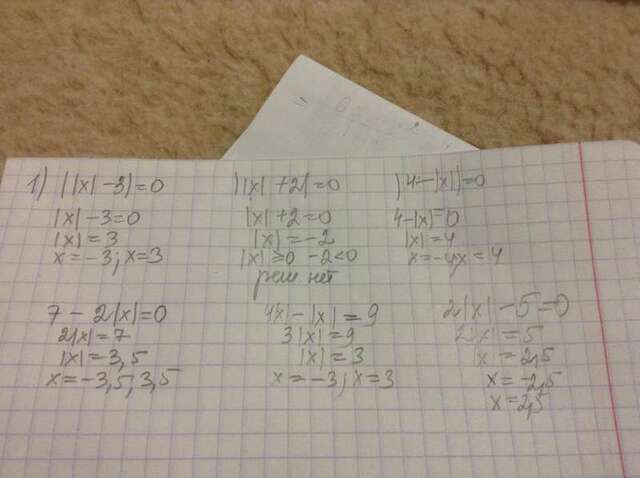 1) ||x| -3|=0
|x| -3=0
|x| = 3
x = -3; x=3
)|x| +2|=0
|x| +2=0
|x| = -2
|x| ≥0 -2<0
реш нет
)4-|x||=0
4-|x|=0
|x| = 4
x= -4 x = 4
7 - 2|x|=0
2|x| = 7
|x| = 3,5
x= -3,5; 3,5
4|x| - |x| = 9
3|x| = 9
|x| = 3
x = -3; x = 3
2|x| - 5=0
2|x| = 5
x = 2,5
x = -2,5
x = 2,5